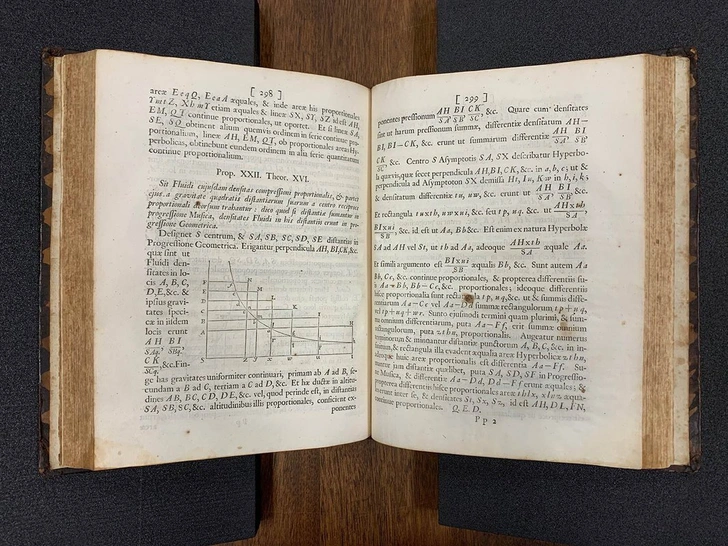 [ 298 ]
areæ EeqQ, EeaA æquales, & inde areæ his proportionales
etiam æquales & lineæ SX, SY, SZ id est AH,
EM, QT continue proportionales, ut oportet. Et si lineæ SA,
SE, SQ obtinent alium quemvis ordinem in serie continue pro-
portionalium, lineæ AH, EM, QT, ob proportionales areas Hy-
perbolicas, obtinebunt eundem ordinem in alia serie quantitatum
continue proportionalium.
Prop. XXII. Theor. XVI.
Sit Fluidi cujusdam densitas compressioni proportionalis, & partes
ejus a gravitate quadratis distantiarum suarum a centro reciproce
proportionali deorsum trahantur: dico quod si distantiæ sumantur in
progressione Musica, densitates Fluidi in his distantiis erunt in pro-
gressione Geometrica.
Designet S centrum, & SA, SB, SC, SD, SE distantias in
Progressione Geometrica. Erigantur perpendicula AH, BI, CK, &c.
quæ sint ut
Fluidi den-
sitates in lo-
cis A, B, C,
D, E, &c. &
ipsius gravi-
tates speci-
cæ in iisdem
locis erunt
AH BI
SAq.' SBq.'
CK
SCq. &c. Fin-
ge has gravitates uniformiter continuari, primam ab A ad B, se-
cundam a B ad C, tertiam a C ad D, &c. Et hæ ductæ in altitu-
dines AB, BC, CD, DE, &c. vel, quod perinde est, in distantias
SA, SB, SC, &c. altitudinibus illis proportionales, conficient ex-
ponentes
[ 299 ]
ponentes pressionum AH/SA, BI/SB, CK/SC, &c. Quare cum densitates
sint ut harum pressionum summæ, differentiæ densitatum AH−
BI, BI−CK, &c. erunt ut summarum differentiæ AH/SA, BI/SB,
CK/SC, &c. Centro S Asymptotis SA, SX describatur Hyperbo-
la quævis, quæ secet perpendicula AH, BI, CK, &c. in a, b, c; ut &
perpendicula ad Asymptoton SX demissa Ht, Iu, Kw in h, i, k;
& densitatum differentiæ tu, uw, &c. erunt ut AH/SA, BI/SB, &c.
Et rectangula tu×th, uw×ui, &c. seu tp, uq, &c. ut AH×th/SA,
BI×ui/SB, &c. id est ut Aa, Bb &c. Est enim ex natura Hyperbolæ
SA ad AH vel St, ut th ad Aa, adeoque AH×th/SA æquale Aa.
Et simili argumento est BI×ui/SB æqualis Bb, &c. Sunt autem Aa
Bb, Cc, &c. continue proportionales, & propterea differentiis su-
is Aa−Bb, Bb−Cc, &c. proportionales; ideoque differentiis
hisce proportionalia sunt rectangula tp, uq, &c. ut & summis diffe-
rentiarum Aa−Cc vel Aa−Dd summæ rectangulorum tp+uq,
vel tp+uq+wr. Sunto ejusmodi termini quam plurimi, & sum-
ma omnium differentiarum, puta Aa−Ff, erit summæ omnium
rectangulorum, puta zthn, proportionalis. Augeatur numerus
terminorum & minuantur distantiæ punctorum A, B, C, &c. in in-
finitum, & rectangula illa evadent æqualia areæ Hyperbolicæ zthn,
adeoque huic areæ proportionalis est differentia Aa−Ff. Su-
mantur jam distantiæ quælibet, puta SA, SD, SF in Progressio-
ne Musica, & differentiæ Aa−Dd, Dd−Ff erunt æquales; &
propterea differentiis hisce proportionales areæ thlx, xlnz æqua-
les erunt inter se, & densitates St, Sx, Sz, id est AH, DL, FN,
continue proportionales. Q.E.D.
Pp 2